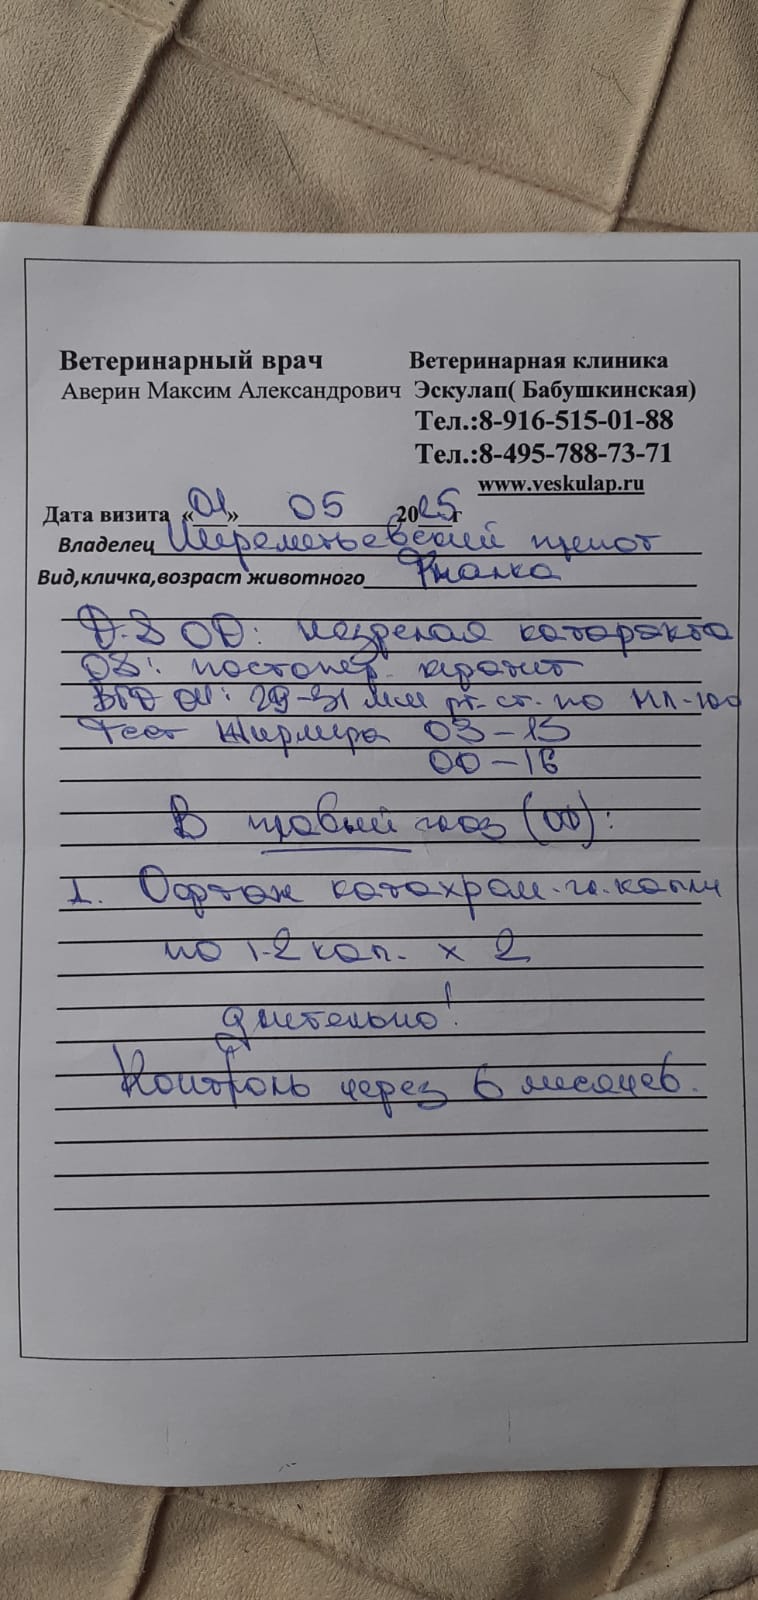 Ветеринарный врач Ветеринарная клиника
Аверин Максим Александрович Эскулап( Бабушкинская)
Тел.:8-916-515-01-88
Тел.:8-495-788-73-71
www.veskulap.ru
Дата визита «01» 05 2025г
Владелец Шереметьевский приют
Вид,кличка,возраст животного Фиалка
D.S OD: незрелая катаракта
OS: постопер. кератит
ВГД OU: 29-31 мм рт. ст. по
Тест Ширмера OS – 15
OD – 16
В правый глаз (OD):
1. Офтан катахром. гл. капли
по 1-2 кап. х 2
длительно!
Контроль через 6 месяцев.